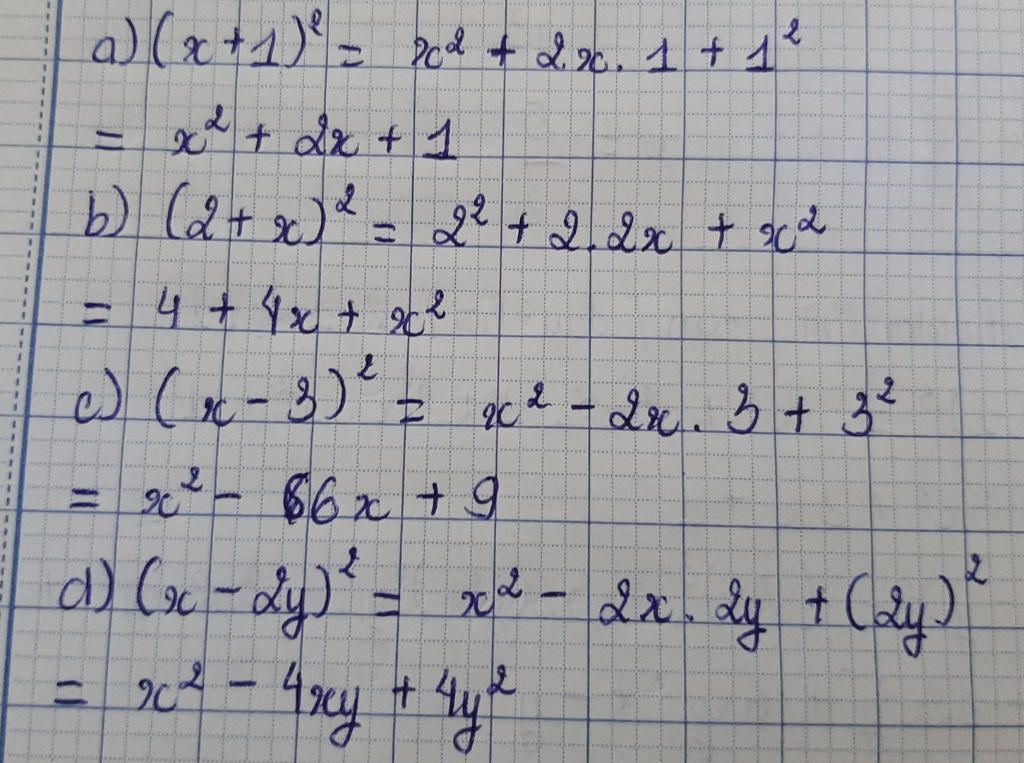 a) (x+1)² = x² + 2x. 1 + 1²
= x² + 2x + 1
b) (2+x)² = 2² + 2.2x + x²
= 4 + 4x + x²
c) (x-3)² = x² - 2x. 3 + 3²
= x² - 6x + 9
d) (x-2y)² = x² - 2x. 2y + (2y)²
= x² - 4xy + 4y²